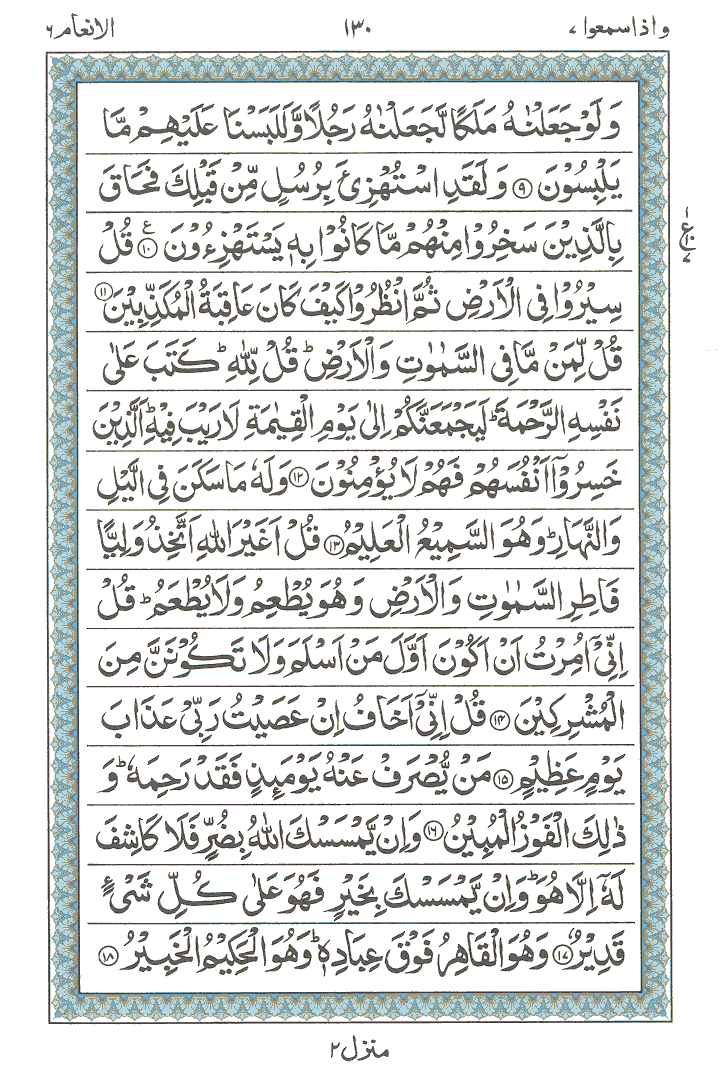 واذاسمعوا ٧ ١٣٠ الانعام ٦
وَلَوْ جَعَلْنٰهُ مَلَكًا لَّجَعَلْنٰهُ رَجُلًا وَّلَلَبَسْنَا عَلَيْهِمْ مَّا
يَلْبِسُوْنَ ۝٩ وَلَقَدِ اسْتُهْزِئَ بِرُسُلٍ مِّنْ قَبْلِكَ فَحَاقَ
بِالَّذِيْنَ سَخِرُوْا مِنْهُمْ مَّا كَانُوْا بِهٖ يَسْتَهْزِءُوْنَ ۝١٠ ع قُلْ
١ ع ١٠ ٧
سِيْرُوْا فِى الْاَرْضِ ثُمَّ انْظُرُوْا كَيْفَ كَانَ عَاقِبَةُ الْمُكَذِّبِيْنَ ۝١١
قُلْ لِّمَنْ مَّا فِى السَّمٰوٰتِ وَالْاَرْضِ ؕ قُلْ لِّلّٰهِ ؕ كَتَبَ عَلٰى
نَفْسِهِ الرَّحْمَةَ ؕ لَيَجْمَعَنَّكُمْ اِلٰى يَوْمِ الْقِيٰمَةِ لَا رَيْبَ فِيْهِ ؕ اَلَّذِيْنَ
خَسِرُوْۤا اَنْفُسَهُمْ فَهُمْ لَا يُؤْمِنُوْنَ ۝١٢ وَلَهٗ مَا سَكَنَ فِى الَّيْلِ
وَالنَّهَارِ ؕ وَهُوَ السَّمِيْعُ الْعَلِيْمُ ۝١٣ قُلْ اَغَيْرَ اللّٰهِ اَتَّخِذُ وَلِيًّا
فَاطِرِ السَّمٰوٰتِ وَالْاَرْضِ وَهُوَ يُطْعِمُ وَلَا يُطْعَمُ ؕ قُلْ
اِنِّىْۤ اُمِرْتُ اَنْ اَكُوْنَ اَوَّلَ مَنْ اَسْلَمَ وَلَا تَكُوْنَنَّ مِنَ
الْمُشْرِكِيْنَ ۝١٤ قُلْ اِنِّىْۤ اَخَافُ اِنْ عَصَيْتُ رَبِّىْ عَذَابَ
يَوْمٍ عَظِيْمٍ ۝١٥ مَنْ يُّصْرَفْ عَنْهُ يَوْمَئِذٍ فَقَدْ رَحِمَهٗ ؕ وَ
ذٰلِكَ الْفَوْزُ الْمُبِيْنُ ۝١٦ وَاِنْ يَّمْسَسْكَ اللّٰهُ بِضُرٍّ فَلَا كَاشِفَ
لَهٗۤ اِلَّا هُوَ ؕ وَاِنْ يَّمْسَسْكَ بِخَيْرٍ فَهُوَ عَلٰى كُلِّ شَىْءٍ
قَدِيْرٌ ۝١٧ وَهُوَ الْقَاهِرُ فَوْقَ عِبَادِهٖ ؕ وَهُوَ الْحَكِيْمُ الْخَبِيْرُ ۝١٨
منزل ٢